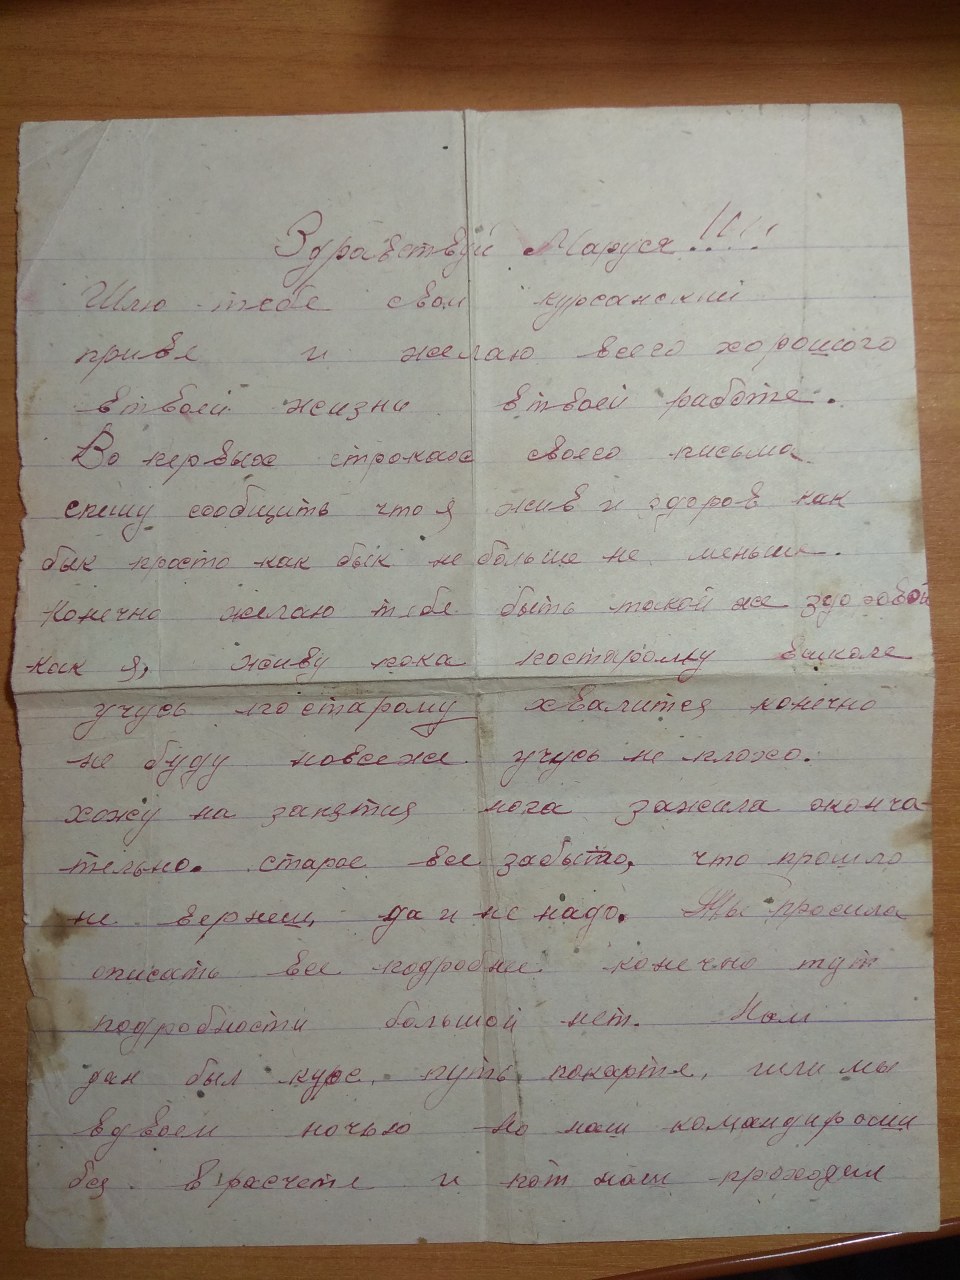 Здравствуй Маруся!!!!
Шлю тебе свой курсанский
приве и желаю всего хорошого
втвоей жизни втвоей работе.
Во первых строках своего письма
спешу сообщить что я жив и здоров как
бык просто как бык не больше не меньше.
Конечно желаю тебе быть такой же здоровой
как я, живу пока постарому вшколе
учусь постарому хвалится конечно
не буду новсеже учусь не плохо.
хожу на занятия нога зажила оконча-
тельно. старое все забыто, что прошло
не вернеш, да и не надо. Ты просила
описать все подробнее конечно тут
подробности большой нет. Нам
дан был курс, путь покарте, шли мы
вдвоем ночью но наш командир оши
бся в расчете и